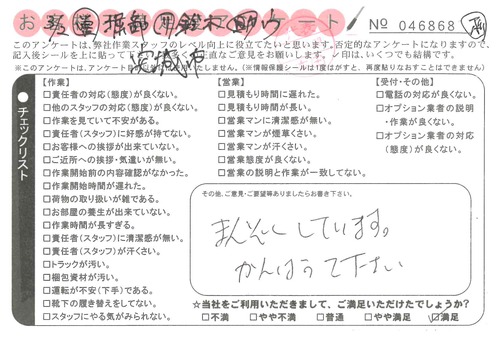 アンケート
No 046868
このアンケートは、弊社作業スタッフのレベル向上に役立てたいと思います。否定的なアンケートになりますので、
記入後シールを上に貼って下
直なご意見をお願いします。✓印は、いくつでも結構です。
(※情報保護シールは1度はがすと、再度貼りなおすことはできません)
チェックリスト
【作業】
□責任者の対応(態度)が良くない。
□他のスタッフの対応(態度)が良くない。
□作業を見ていて不安がある。
□責任者(スタッフ)に好感が持てない。
□お客様への挨拶が出来ていない。
□ご近所への挨拶・気遣いが無い。
□作業開始前の内容確認がなかった。
□作業開始時間が遅れた。
□荷物の取り扱いが雑である。
□お部屋の養生が出来ていない。
□作業時間が長すぎる。
□責任者(スタッフ)に清潔感が無い。
□責任者(スタッフ)が汗くさい。
□トラックが汚い。
□梱包資材が汚い。
□運転が不安(下手)である。
□靴下の履き替えをしてない。
□スタッフにやる気がみられない。
【営業】
□見積もり時間に遅れた。
□見積もり時間が長い。
□営業マンに清潔感が無い。
□営業マンが煙草くさい。
□営業マンが汗くさい。
□営業態度が良くない。
□営業の説明と作業が一致してない。
【受付・その他】
□電話の対応が良くない。
□オプション業者の説明
・作業が良くない。
□オプション業者の対応
(態度)が良くない。
その他、ご意見・ご要望等ありましたらお書き下さい。
まんぞくしています。
がんばって下さい
☆当社をご利用いただきまして、ご満足いただけたでしょうか?
□不満 □やや不満 □普通 □やや満足 ☑満足